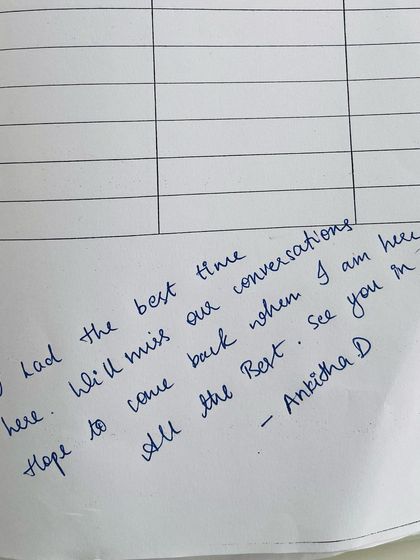 had the best time
here. Will miss our conversations
Hope to come back when I am here
All the Best. See you in
- Ankitha.D